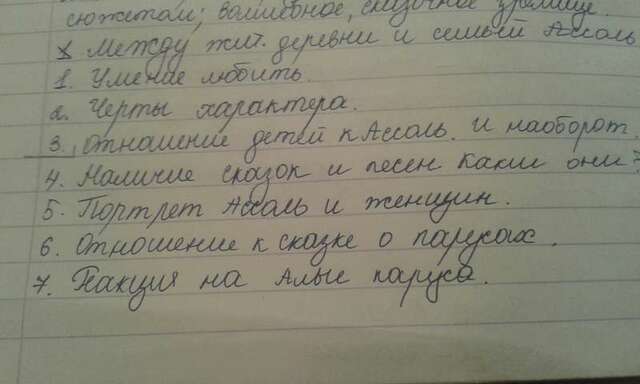 сюжетом; волшебное, сказочное зрелище.
х Между жит. деревни и семьёй Ассоль
1. Умение любить.
2. Черты характера.
3. Отношение детей к Ассоль. и наоборот.
4. Наличие сказок и песен Какие они?
5. Портрет Ассоль и женщин.
6. Отношение к сказке о парусах.
7. Реакция на Алые паруса.